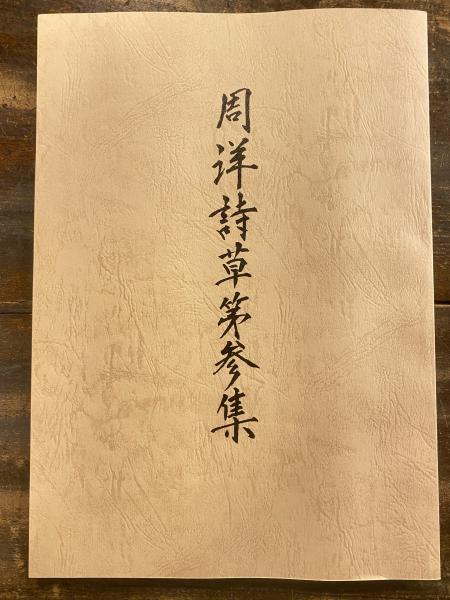 周洋詩草第参集